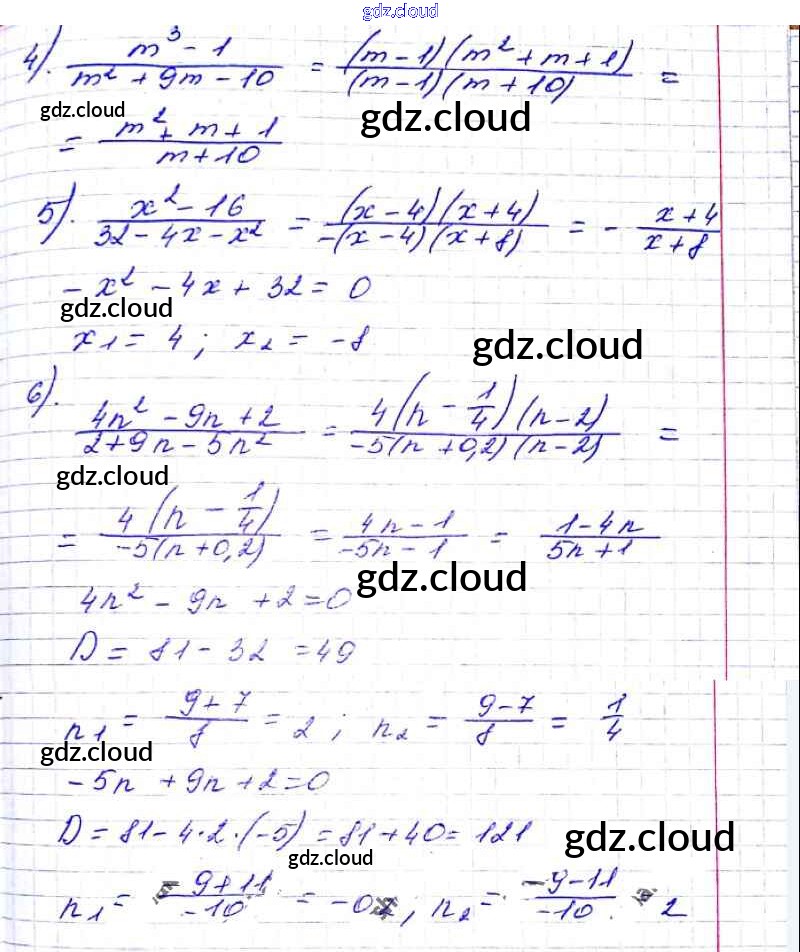 gdz.cloud
4). (m³ - 1)/(m² + 9m - 10) = ((m - 1)(m² + m + 1))/((m - 1)(m + 10)) =
gdz.cloud gdz.cloud
= (m² + m + 1)/(m + 10)
5). (x² - 16)/(32 - 4x - x²) = ((x - 4)(x + 4))/(-(x - 4)(x + 8)) = - (x + 4)/(x + 8)
-x² - 4x + 32 = 0
gdz.cloud
x₁ = 4 ; x₂ = -8
gdz.cloud
6).
(4n² - 9n + 2)/(2 + 9n - 5n²) = (4(n - 1/4)(n - 2))/(-5(n + 0,2)(n - 2)) =
gdz.cloud
= (4(n - 1/4))/(-5(n + 0,2)) = (4n - 1)/(-5n - 1) = (1 - 4n)/(5n + 1)
gdz.cloud
4n² - 9n + 2 = 0
D = 81 - 32 = 49
n₁ = (9 + 7)/8 = 2 ; n₂ = (9 - 7)/8 = 1/4
gdz.cloud
-5n + 9n + 2 = 0
D = 81 - 4·2·(-5) = 81 + 40 = 121
gdz.cloud
gdz.cloud
n₁ = (-9 + 11)/(-10) = -0,2 ; n₂ = (-9 - 11)/(-10) = 2